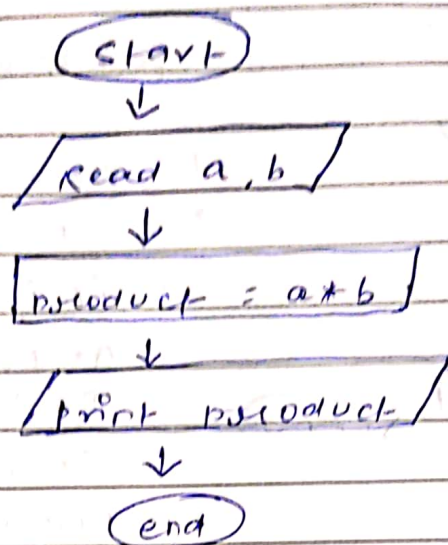 Start
Read a, b
product = a * b
print product
end